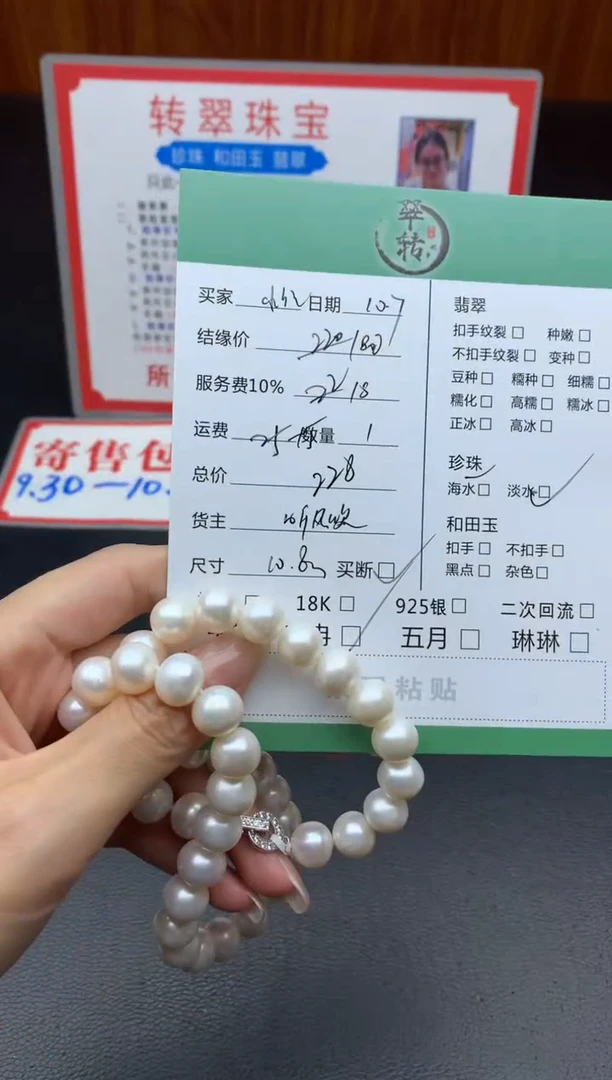 转翠珠宝
珍珠 和田玉 翡翠
翠
转
买家 日期 10.7
结缘价 220 180
服务费10% 22 18
运费 25 数量 1
总价 228
货主
尺寸 10.8 买断□
翡翠
扣手纹裂□ 种嫩□
不扣手纹裂□ 变种□
豆种□ 糯种□ 细糯□
糯化□ 高糯□ 糯冰□
正冰□ 高冰□
珍珠
海水□ 淡水□
和田玉
扣手□ 不扣手□
黑点□ 杂色□
18K□ 925银□ 二次回流□
五月□ 琳琳□
粘贴
寄售包
9.30—10.
所